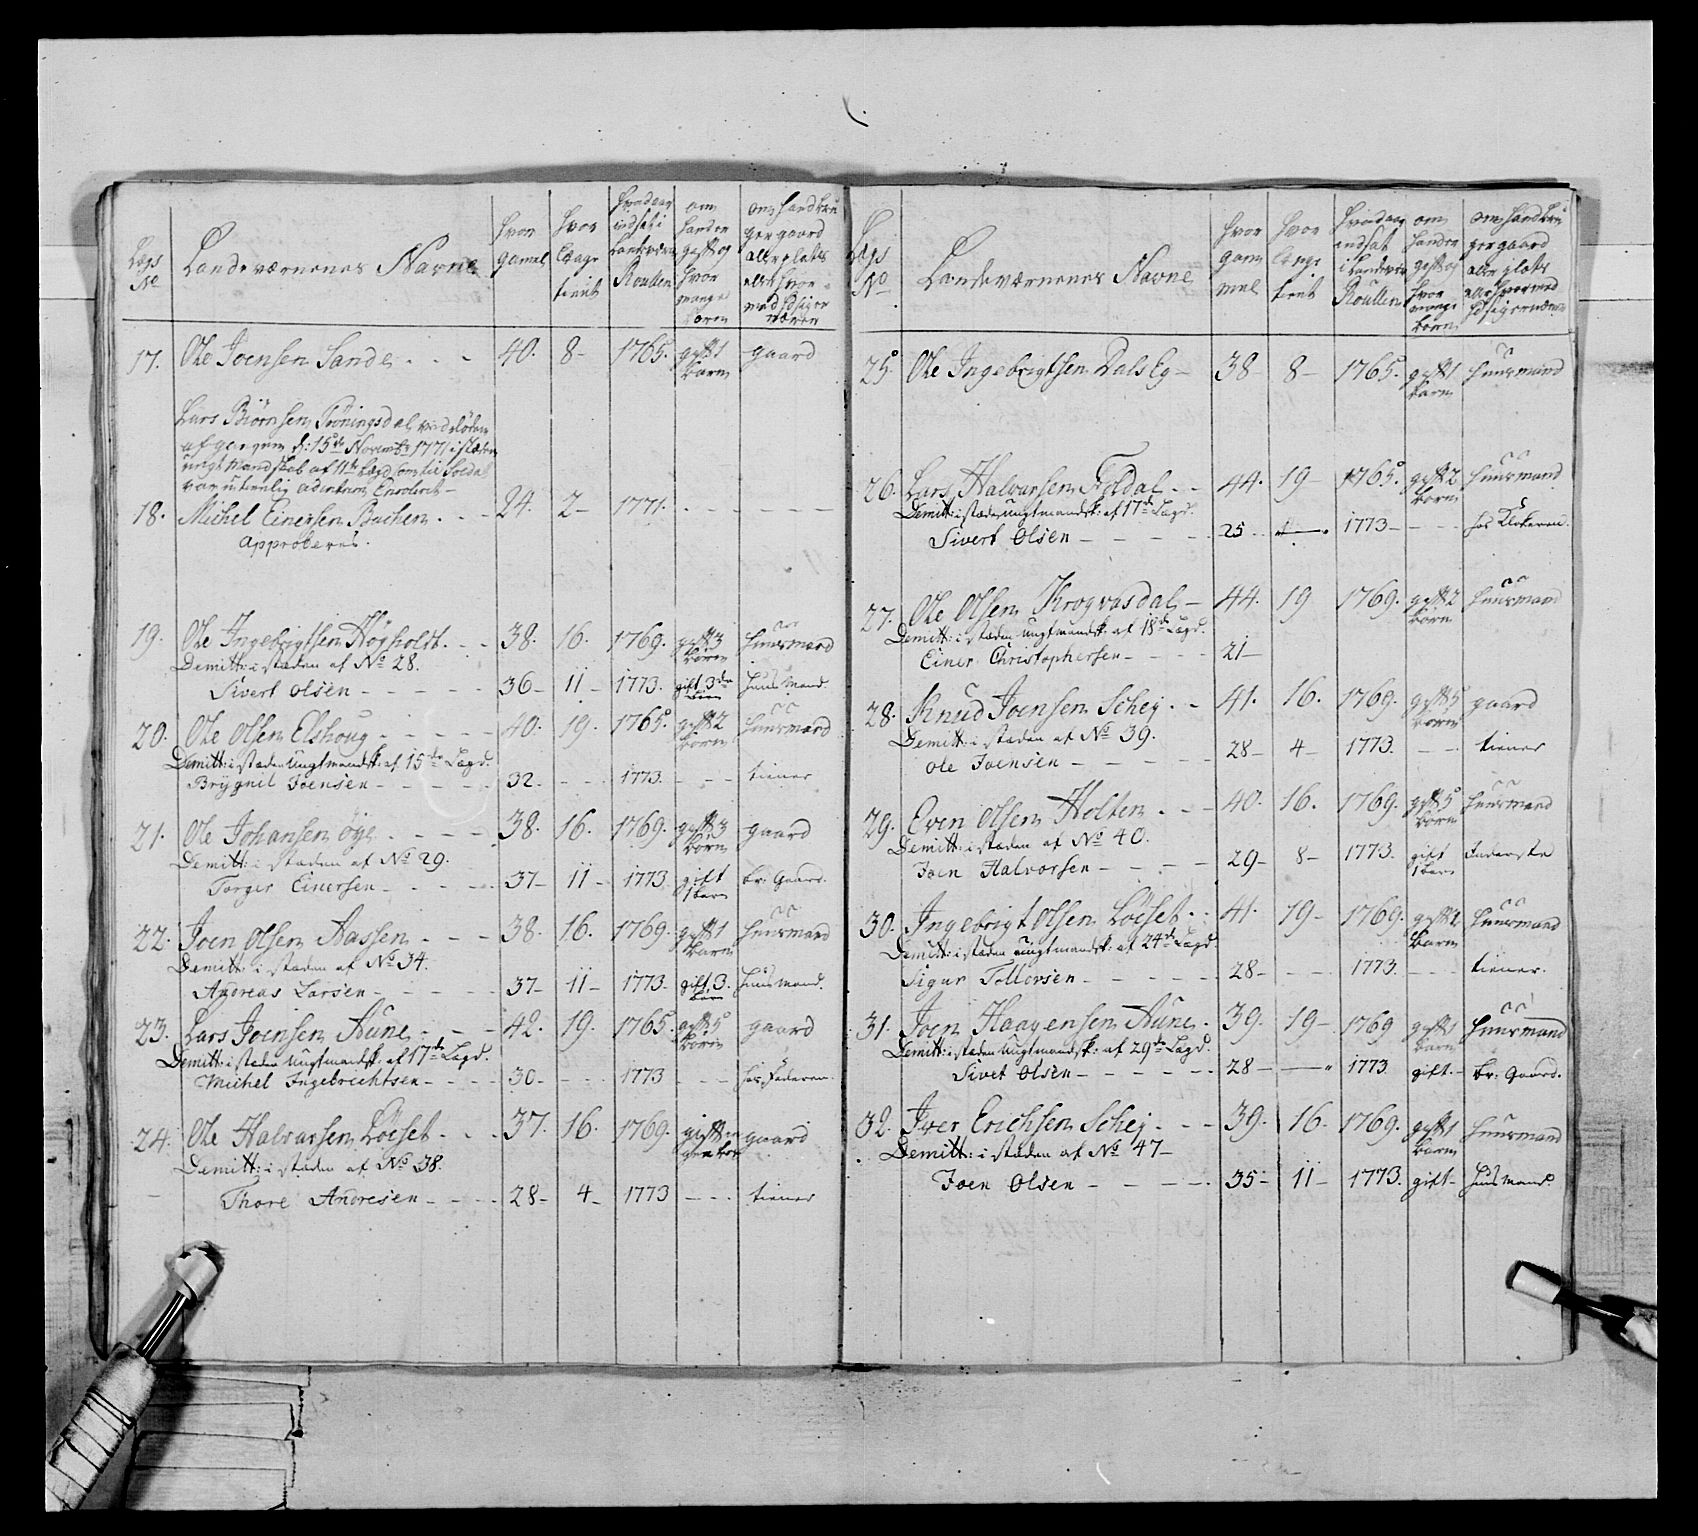 Lægs No
Landeværnenes Navne
hvor gamel
hvor længe tient
hvad aar indsat i Landeværn Roullen
om hand er gift og hvor mange børn
om hand bruger gaard eller plads eller hvormed
17. Ole Joensen Sande - - - 40. 8 - 1765. gift 1 barn gaard
Lars Biörnsen Tröningsdal ved döden
afgangen d: 15de Novembr 1771 i stæden
ungt Mandskab af 11te Lægd som til Soldat
var utienlig
18. Michel Einersen Bachen - - 24. 2 - 1771. - - - - - -
Approberes.
19. Ole Ingebrigtsen Høgholdt. - - 38. 16. 1769. gift 3 børn huusmand
Demitt: i stæden af No 28.
Sivert Olsen - - - - - 36 - 11 - 1773. gift 3de børn Huusmand.
20. Ole Olsen Elshoug - - - - - 40. 19. 1765. gift 2 børn huusmand
Demitt: i stæden Ungtmandsk: af 15de Lægd.
Brÿgnil Joensen - - - - - 32. - - - 1773. - - - tiener
21. Ole Johansen Öye - - - - 38. 16. 1769. gift 3 børn gaard
Demitt: i stæden af No 29.
Torger Einersen - - - - - 37 - 11 - 1773 gift 1 barn br: Gaard.
22. Joen Olsen Aassen - - - 38. 16. 1769. gift 1 barn huusmand
Demitt: i stæden af No 34.
Andreas Larsen - - - - - 37 - 11 - 1773 - gift 3. børn Huusmand.
23. Lars Joensen Aune - - - 42. 19. 1765. gift 5 børn gaard
Demitt: i stæden Ungtmandsk: af 17de Lægd.
Michel Ingebrichtsen - - - - 30 - - - - 1773 - - - hos Faderen.
24. Ole Halvarsen Löeset - - - 37. 16. 1769. gift gaard
Demitt: i stæden af No 38.
Thore Andresen - - - - 28 - 4 - 1773 - - - tiener
Lægs No
Landeværnenes Navne
hvor gam mel
hvor lenge tient
hvad aar indsat i Landeværn Roullen
om hand er gift og hvor mange børn
om hand bruger gaard eller plads eller hvormed
25. Ole Ingebrigtsen Dals Eg - 38 - 8 - 1765. gift 1 barn huusmand
26. Lars Halvarsen Foldal - - 44. 19 - 1765. gift 2 børn huusmand
Demitt: i stæden ungtmandsk: af 17de Lægd.
Sivert Olsen - - - - - 25 - - 1773 - - - - hos Klokeren.
27. Ole Olsen Krogvasdal - 44. 19 1769. gift 2 børn huusmand
Demitt: i stæden Ungtmandsk: af 18de Lægd.
Einer Christophersen - - - - 21 -
28. Knud Joensen Schej - - 41. 16. 1769. gift 5 børn gaard
Demitt: i stæden af No 39.
Ole Joensen - - - - - 28 - 4 - 1773. - - - tiener
29. Even Olsen Holten - - - 40. 16. 1769. gift 5 børn huusmand
Demitt: i stæden af No 40.
Joen Halvorsen - - - - 29 - 8 - 1773. gift 1 barn Inderste
30. Ingebrigt Olsen Löeset - - 41. 19 - 1769. gift 1 barn huusmand
Demitt: i stæden ungtmandsk: af 24de Lægd
Sigur Tollorsen - - - - - 28 - - - - 1773. - - - - tiener.
31. Joen Haagensen Aune. 39. 19 - 1769 gift 1 barn huusmand
Demitt: i stæden Ungtmandsk: af 29de Lægd.
Sivet Olsen - - - - - - 28 - - 1773. gift - br: Gaard.
32. Iver Erichsen Schej - - - 39. 16 - 1769. gift 1 barn huusmand
Demitt: i stæden af No 47 -
Joen Olsen - - - - - 35 - 11 - 1773. gift - Huusmand.